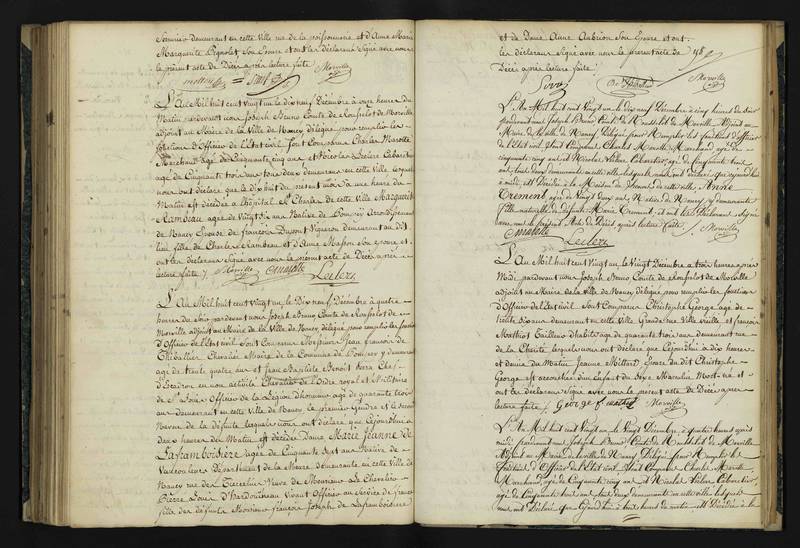 demeurant en cette Ville rue de la poissonnerie et d'Anne Marie
Marguerite Pognolet Son Epouse et ont les déclarants Signé avec nous
le présent acte de Décès après lecture faite
Morville
L'An Mil huit cent Vingt un le Dix neuf Décembre à onze heures du
Matin pardevant nous Joseph Bruno Comte de Morville
adjoint au Maire de la Ville de Nancy délégué pour remplir les
fonctions d'Officier de l'Etat civil Sont Comparus Charles Marotte
Marchand agé de Cinquante cinq ans et Nicolas Leclerc Cabaretier
agé de Cinquante trois ans tous deux demeurant en cette Ville lesquels
nous ont déclaré que le dix huit du présent mois à une heure du
Matin est décédée à l'hôpital St Charles de cette Ville Marguerite
Rambeau agée de Vingt Six ans Native de Bouxey Arrondissement
de Nancy Epouse de françois Dupont Vigneron demeurant au dit
lieu fille de Charles Rambeau et d'Anne Masson Son épouse et
ont les déclarants Signé avec nous le présent acte de Décès après
lecture faite
Morville Cmarotte Leclerc
L'An Mil huit cent Vingt un le Dix neuf Décembre à quatre
heures du Soir pardevant nous Joseph Bruno Comte de
Morville adjoint au Maire de la Ville de Nancy délégué pour remplir les fonctions
d'Officier de l'Etat civil Sont Comparus Messieurs Jean françois de
Maire de la Commune de Bouxey y demeurant
agé de trente quatre ans et Jean Baptiste Benoit Chef
d'Escadron en non activité Chevalier de l'Ordre royal et Militaire
de St Louis Officier de la Légion d'honneur agé de quarante trois
ans demeurant en cette Ville de Nancy le premier Gendre et le second
Neveu de la défunte lesquels nous ont déclaré que Cejourd'hui à
deux heures du Matin est décédée Dame Marie Jeanne de
Laframboisière agée de Cinquante Sept ans Native de
Vaucouleurs Département de la Meuse demeurante en cette Ville de
Nancy rue des Tiercelins Veuve de Monsieur le Chevalier
Pierre vivant Officier au Service de france
fille des défunts Monsieur françois Joseph de Laframboisière
et de Dame Anne Aubrion Son Epouse et ont
les déclarants Signé avec nous le présent acte de
Décès après lecture faite
Morville
L'An Mil huit cent Vingt un le Dix neuf Décembre à cinq heures du soir
pardevant nous Joseph Bruno Comte de Morville Adjoint au
Maire de la ville de Nancy, Délégué pour Remplir les fonctions d'officier
de l'Etat civil, Sont Comparus Charles Marotte Marchand, agé de
cinquante cinq ans et Nicolas Leclerc Cabaretier, agé de Cinquante trois
ans, tous deux demeurants en cette ville lesquels nous ont déclaré que cejourd'hui
à midi est Décédée à la Maison de Secours de cette ville, Anne
Crement, agée de Vingt deux ans, Native de Nancy, y demeurante
fille naturelle de défunte Marie Crement, et ont les Déclarants Signé
avec nous le présent Acte de Décès après lecture faite
Cmarotte Leclerc Morville
L'An Mil huit cent Vingt un le Vingt Décembre à trois heures après
Midi pardevant nous Joseph Bruno Comte de Morville
adjoint au Maire de la Ville de Nancy délégué pour remplir les fonctions
d'Officier de l'Etat civil Sont Comparus Christophe George agé de
trente six ans demeurant en cette Ville Grande rue Ville Vieille et françois
Mathiot Tailleur d'habits agé de quarante trois ans demeurant rue
de la Charité lesquels nous ont déclaré que Cejourd'hui à dix heures
et demie du Matin Jeanne Mettard Epouse du dit Christophe
George est accouchée d'un Enfant du Sexe Masculin Mort-né et
ont les déclarants Signé avec nous le présent acte de Décès après
lecture faite George Morville
L'An Mil huit cent Vingt un le Vingt Décembre, à quatre heures après
midi pardevant nous Joseph Bruno Comte de Morville
Adjoint au Maire de la ville de Nancy Délégué pour Remplir les
fonctions d'Officier de l'Etat civil, Sont Comparus Charles Marotte,
Marchand, agé de Cinquante cinq ans, et Nicolas Leclerc Cabaretier,
agé de Cinquante trois ans, tous deux demeurants en cette ville lesquels
nous ont Déclaré que Cejourd'hui à huit heures du matin est Décédé à la